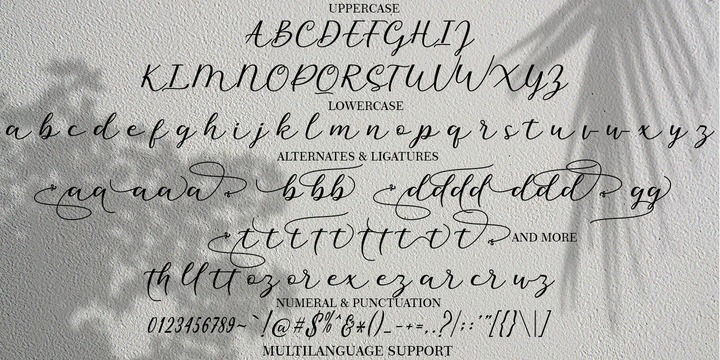 UPPERCASE
ABCDEFGHIJ
KLMNOPQRSTUVWXYZ
LOWERCASE
a b c d e f g h i j k l m n o p q r s t u v w x y z
ALTERNATES & LIGATURES
aa aaaa bbb dddd ddd gg
AND MORE
th ll tt oz or ex ez ar cr wz
NUMERAL & PUNCTUATION
0123456789~`!@#$%^&*()_-+=,.?/;:'"[{}\|]
MULTILANGUAGE SUPPORT